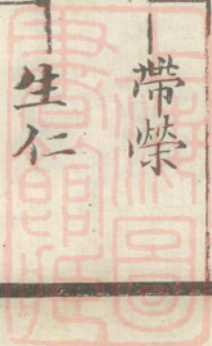 帶榮
生仁